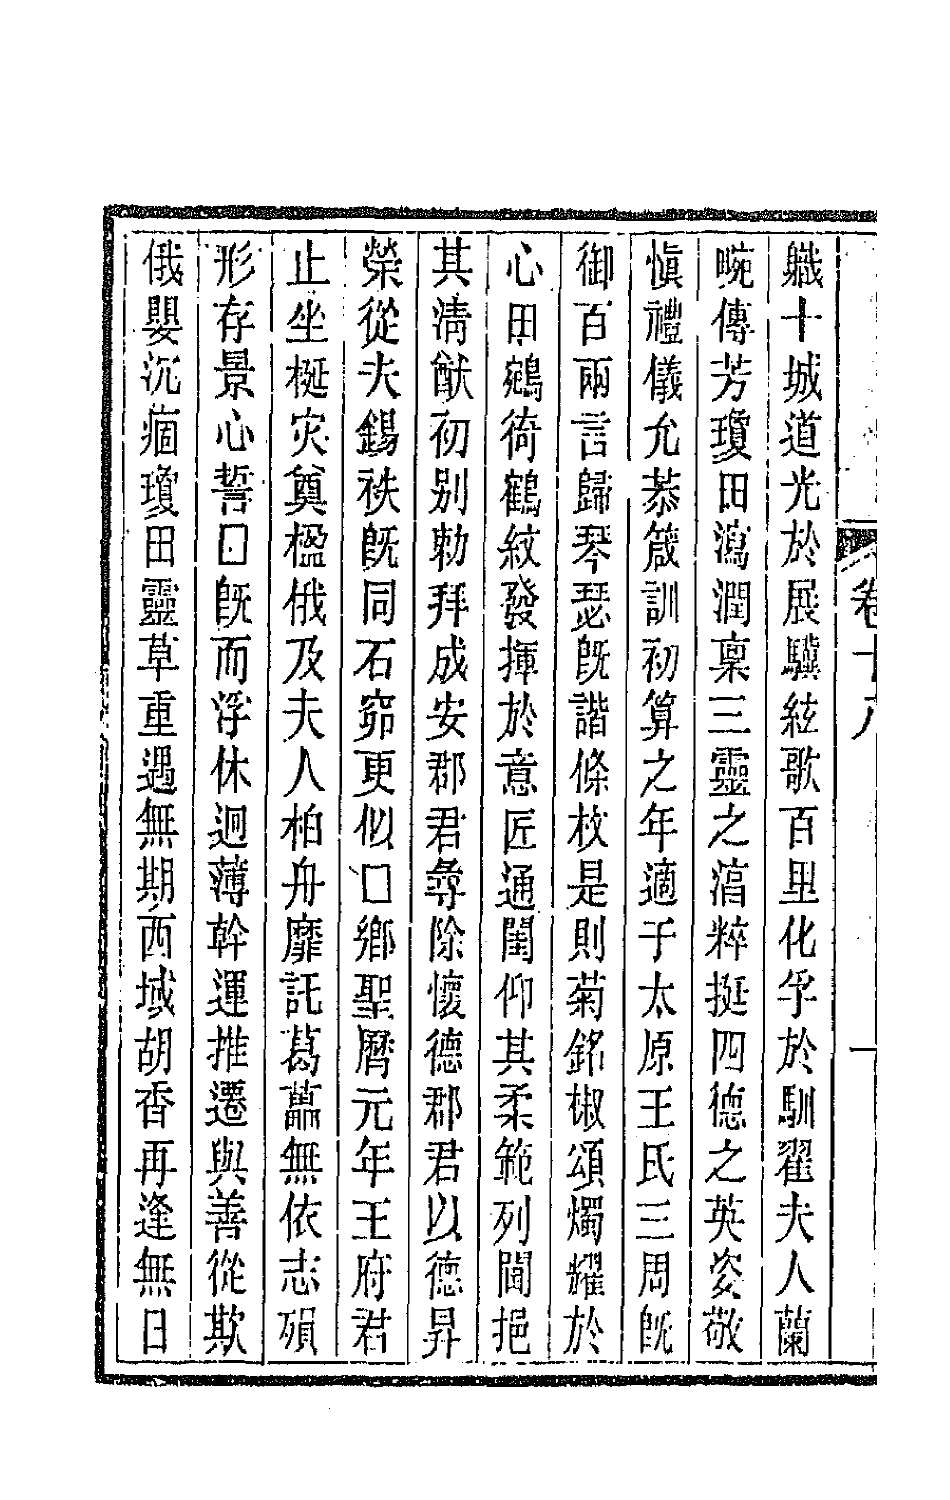 軄十城道光於展驥絃歌百里化孚於馴翟夫人蘭
畹傳芳瓊田瀉潤稟三靈之淯粹挺四德之英姿敬
慎禮儀允恭箴訓初筭之年適于太原王氏三周既
御百兩言歸琴瑟既諧條枚是則菊銘椒頌燭耀於
心田鵷徛鶴紋發揮於意匠通閨仰其柔範列閫挹
其清猷初別勅拜成安郡君尋除懷德郡君以德昇
榮從夫錫秩既同石窌更似□鄉聖曆元年王府君
止坐梴灾奠楹俄及夫人柏舟靡託葛藟無依志殞
形存景心誓□既而浮休迴薄幹運推遷與善從欺
俄嬰沉痼瓊田靈草重遇無期西域胡香再逢無日
卷十八
一